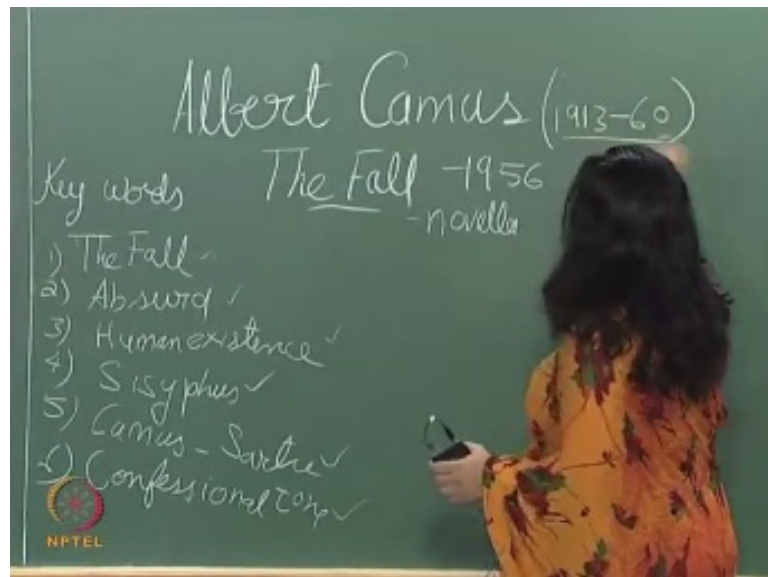 Albert Camus (1913-60)
The Fall - 1956
- novella
Key words
1) The Fall
2) Absurd
3) Human existence
4) Sisyphus
5) Camus - Sartre
6) Confessional tone
NPTEL